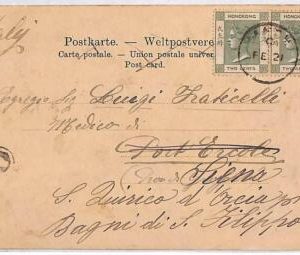 HONGKONG HONGKONG
TWO CENTS TWO CENTS
Postkarte. — Weltpostvere
Carte postale. — Union postale univer
Post card.
FE 2
Egregio Sig Luigi Fraticelli
Medico di
Port Ercole
Siena
S. Quirico d'Orcia pe
Bagni di S. Filippo